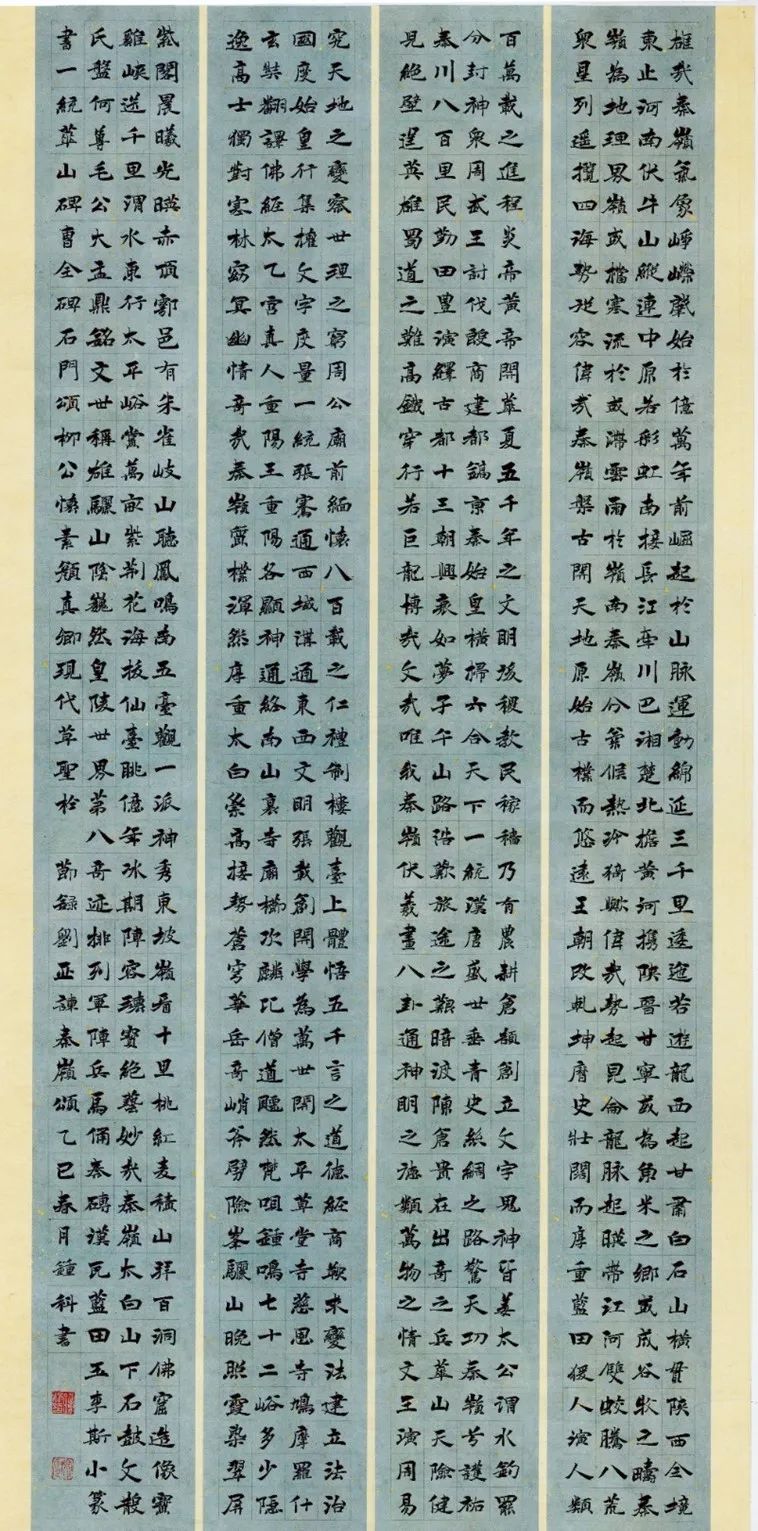 雄哉秦嶺氣象崢嶸肇始於億萬年前崛起於山脈運動綿延三千里逶迤若遊龍西起甘肅白石山橫貫陝西全境
東止河南伏牛山縱連中原若彩虹南接長江牽川巴湘楚北擔黃河攜陝晉甘寧或為魚米之鄉或成谷牧之疇秦
嶺為地理界嶺或擋寒流於或滯雲雨於嶺南秦嶺分氣候熱冷猗歟偉哉勢起昆侖龍脈起暎帶江河雙蛟騰八荒
眾星列遥攬四海勢容偉哉秦嶺盤古開天地原始古樸而悠遠王朝改乾坤曆史壯闊而厚重藍田猿人演人類
百萬載之進程炎帝黃帝開華夏五千年之文明後稷教民稼穡乃有農耕倉頡創立文字鬼神皆姜太公渭水釣罷
分封神眾周武王討伐殷商建都鎬京秦始皇橫掃六合天下一統漢唐盛世垂青史絲綢之路驚天功秦嶺兮護祐
秦川八百里民勤田豐演繹古都十三朝興衰如夢子午山路浩歎旅途之艱暗渡陳倉貴在出奇之兵華山天險健
見絕壁逞英雄蜀道之難高鐵穿行若巨龍博哉文哉唯我秦嶺伏羲畫八卦通神明之德類萬物之情文王演周易
究天地之變察世理之窮周公廟前緬懷八百載之仁禮制樓觀臺上體悟五千言之道德經商鞅求變法建立法治
國度始皇行集權文字度量一統張騫通西域溝通東西文明張載創關學為萬世開太平草堂寺慈恩寺鳩摩羅什
玄奘翻譯佛經太乙宮真人重陽王重陽各顯神通終南山裏寺廟櫛次麟比僧道飄然梵咀鍾鳴七十二峪多少隱
逸高士獨對寒林窈冥幽情奇哉秦嶺質樸渾然厚重太白縈高接勢蒼穹華岳奇峭斧劈險峯驪山晚照靈染翠屏
紫閣晨曦光暎赤頂鄠邑有朱雀岐山聽鳳鳴南五臺觀一派神秀東坡嶺看十里桃紅麦積山拜百洞佛窟造像寶
雞峽送千里渭水東行太平峪賞萬畝紫荊花海板仙臺眺億年冰期陣容瓌寶絕藝妙哉秦嶺太白山下石鼓文散
氏盤何尊毛公大盂鼎銘文世稱雄驪山陰巍然皇陵世界第八奇迹排列軍陣兵馬俑秦磚漢瓦藍田玉李斯小篆
書一統華山碑曹全碑石門頌柳公懷素顏真卿現代草聖於 節錄劉正諫秦嶺頌乙巳春月鍾科書